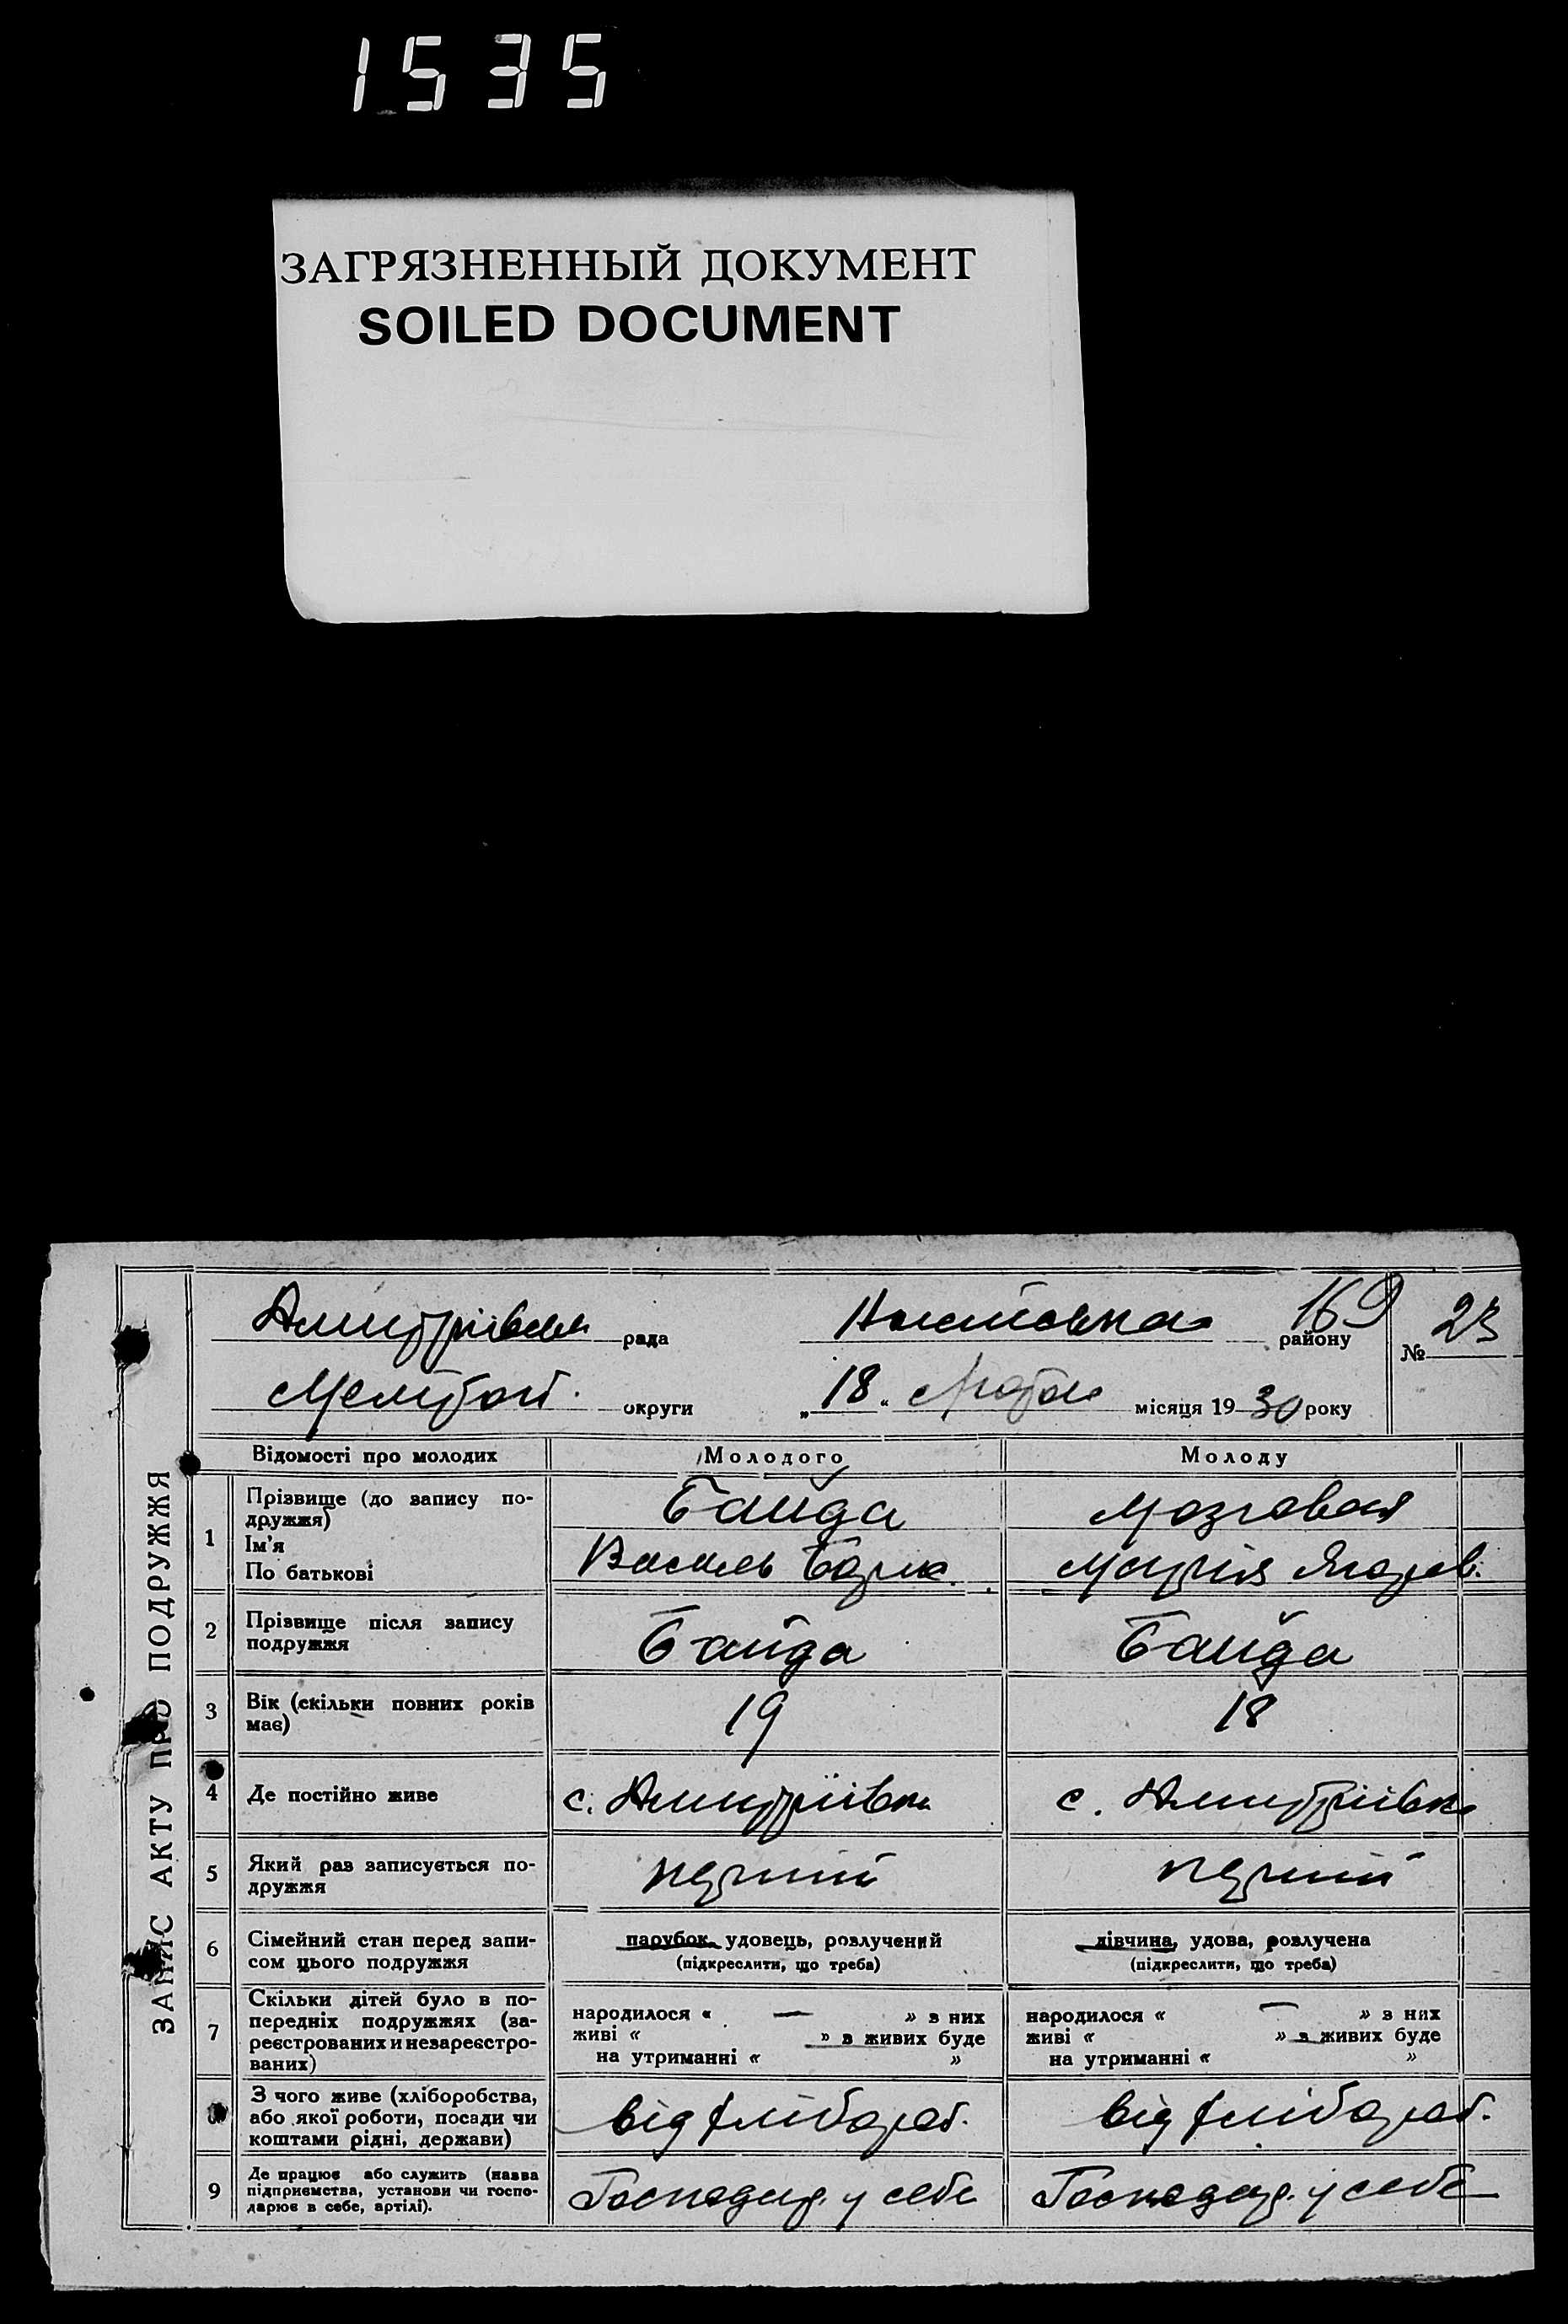 1535
ЗАГРЯЗНЕННЫЙ ДОКУМЕНТ
SOILED DOCUMENT
ЗАПИС АКТУ ПРО ПОДРУЖЖЯ
рада району 169 № 23
округи „18“ місяця 1930 року
Відомості про молодих Молодого Молоду
1 Прізвище (до запису по-
дружжя)
Ім'я
По батькові
Байда Мозговая
Василь Марія
2 Прізвище після запису
подружжя
Байда Байда
3 Вік (скільки повних років
має)
19 18
4 Де постійно живе с. Дмитріівка с. Дмитріівка
5 Який раз записується по-
дружжя
перший перший
6 Сімейний стан перед запи-
сом цього подружжя
парубок, удовець, розлучений
(підкреслити, що треба)
дівчина, удова, розлучена
(підкреслити, що треба)
7 Скільки дітей було в по-
передніх подружжях (за-
реєстрованих и незареєстро-
ваних)
народилося « — » з них
живі « » з живих буде
на утриманні « »
народилося « — » з них
живі « » з живих буде
на утриманні « »
8 З чого живе (хліборобства,
або якої роботи, посади чи
коштами рідні, держави)
від хлібороб. від хлібороб.
9 Де працює або служить (назва
підприємства, установи чи госпо-
дарює в себе, артілі).
Господар. у себе Господар. у себе